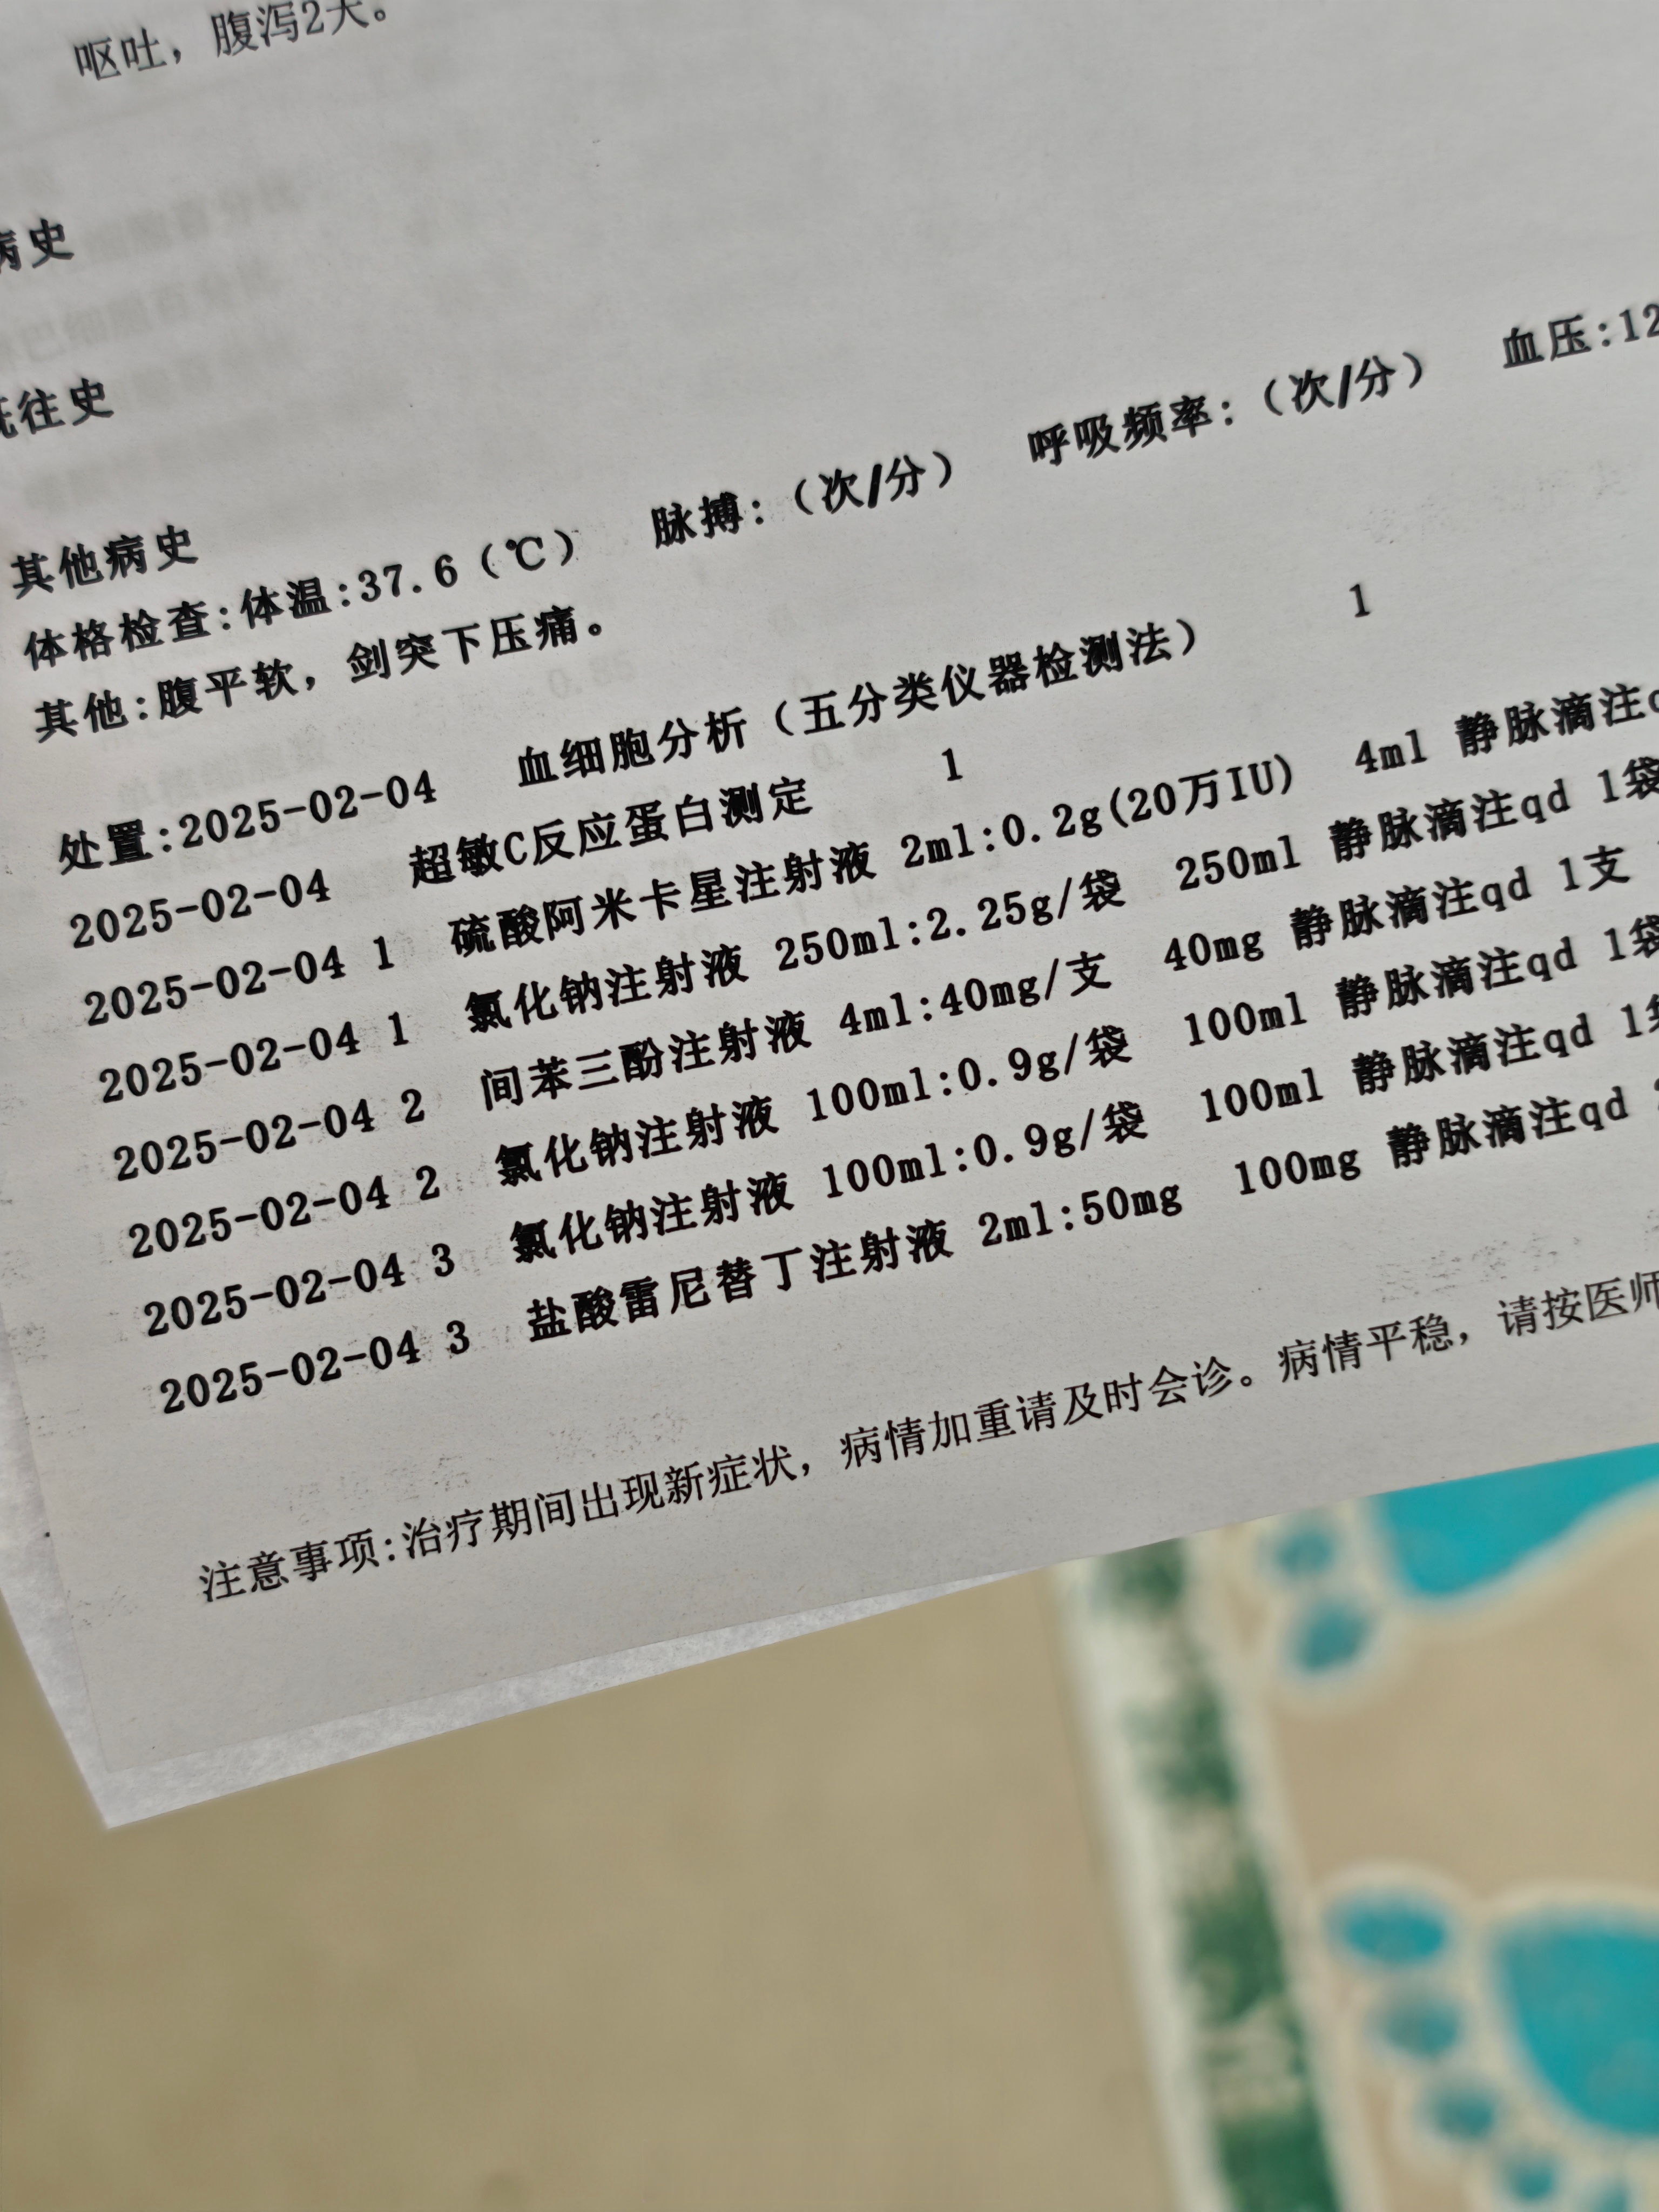 呕吐，腹泻2天。
病史
既往史
其他病史
体格检查:体温:37.6（℃） 脉搏:（次/分） 呼吸频率:（次/分） 血压:12
其他:腹平软，剑突下压痛。
处置:2025-02-04 血细胞分析（五分类仪器检测法） 1
2025-02-04 超敏C反应蛋白测定 1
2025-02-04 1 硫酸阿米卡星注射液 2ml:0.2g(20万IU) 4ml 静脉滴注q
2025-02-04 1 氯化钠注射液 250ml:2.25g/袋 250ml 静脉滴注qd 1袋
2025-02-04 2 间苯三酚注射液 4ml:40mg/支 40mg 静脉滴注qd 1支
2025-02-04 2 氯化钠注射液 100ml:0.9g/袋 100ml 静脉滴注qd 1袋
2025-02-04 3 氯化钠注射液 100ml:0.9g/袋 100ml 静脉滴注qd 1袋
2025-02-04 3 盐酸雷尼替丁注射液 2ml:50mg 100mg 静脉滴注qd
注意事项:治疗期间出现新症状，病情加重请及时会诊。病情平稳，请按医师